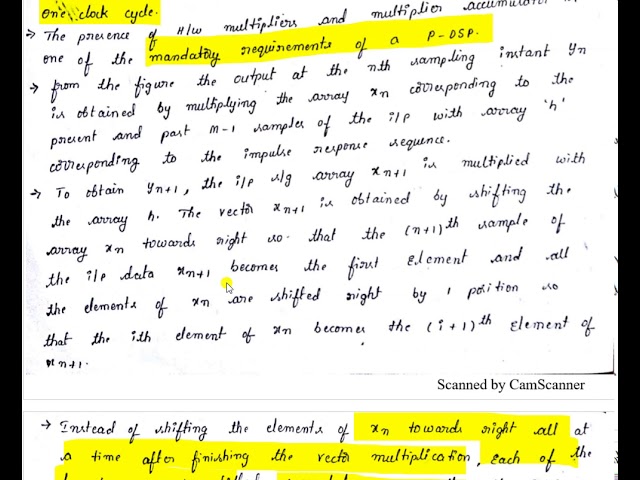 one clock cycle.
→ The presence of H/w multipliers and multiplier accumulator
one of the mandatory requirements of a P-DSP.
→ from the figure the output at the nth sampling instant Yn
is obtained by multiplying the array xn corresponding to the
present and past M-1 samples of the i/p with array 'h'
corresponding to the impulse response sequence.
→ To obtain Yn+1, the i/p s/g array xn+1 is multiplied with
the array h. The vector xn+1 is obtained by shifting the
array xn towards right so that the (n+1)th sample of
the i/p data xn+1 becomes the first element and all
the elements of xn are shifted right by 1 position so
that the ith element of xn becomes the (i+1)th element of
xn+1.
Scanned by CamScanner
→ Instead of shifting the elements of xn towards right all at
a time after finishing the vector multiplication, each of the